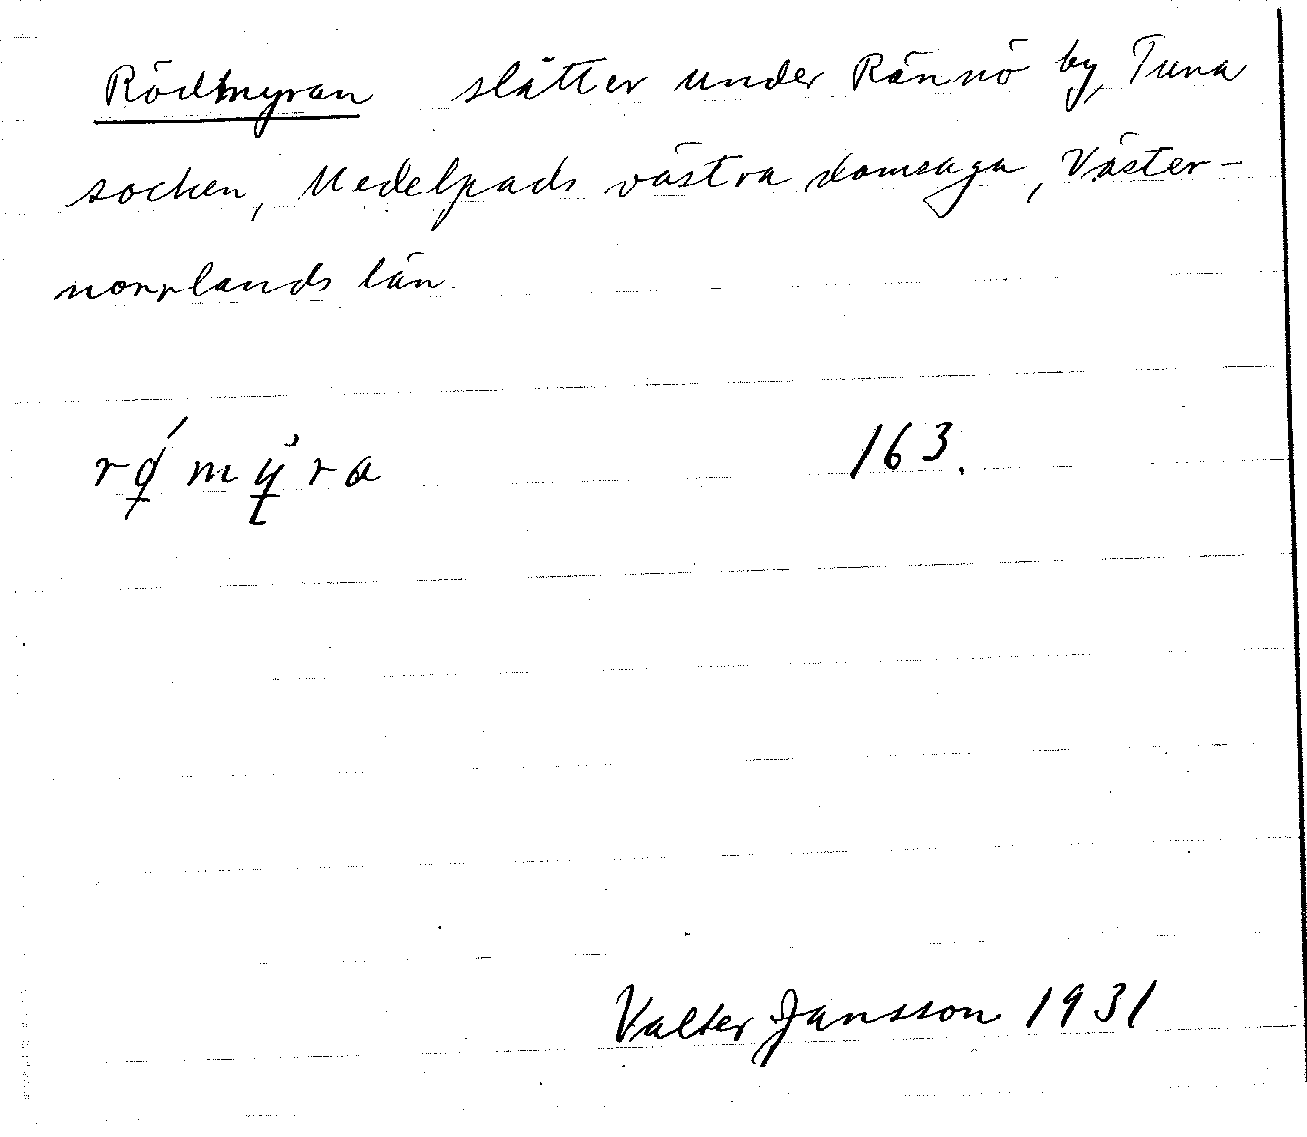 Rödmyran slåtter under Rännö by, Tuna
socken, Medelpads västra domsaga, Väster-
norrlands län.
163.
Valter Jansson 1931